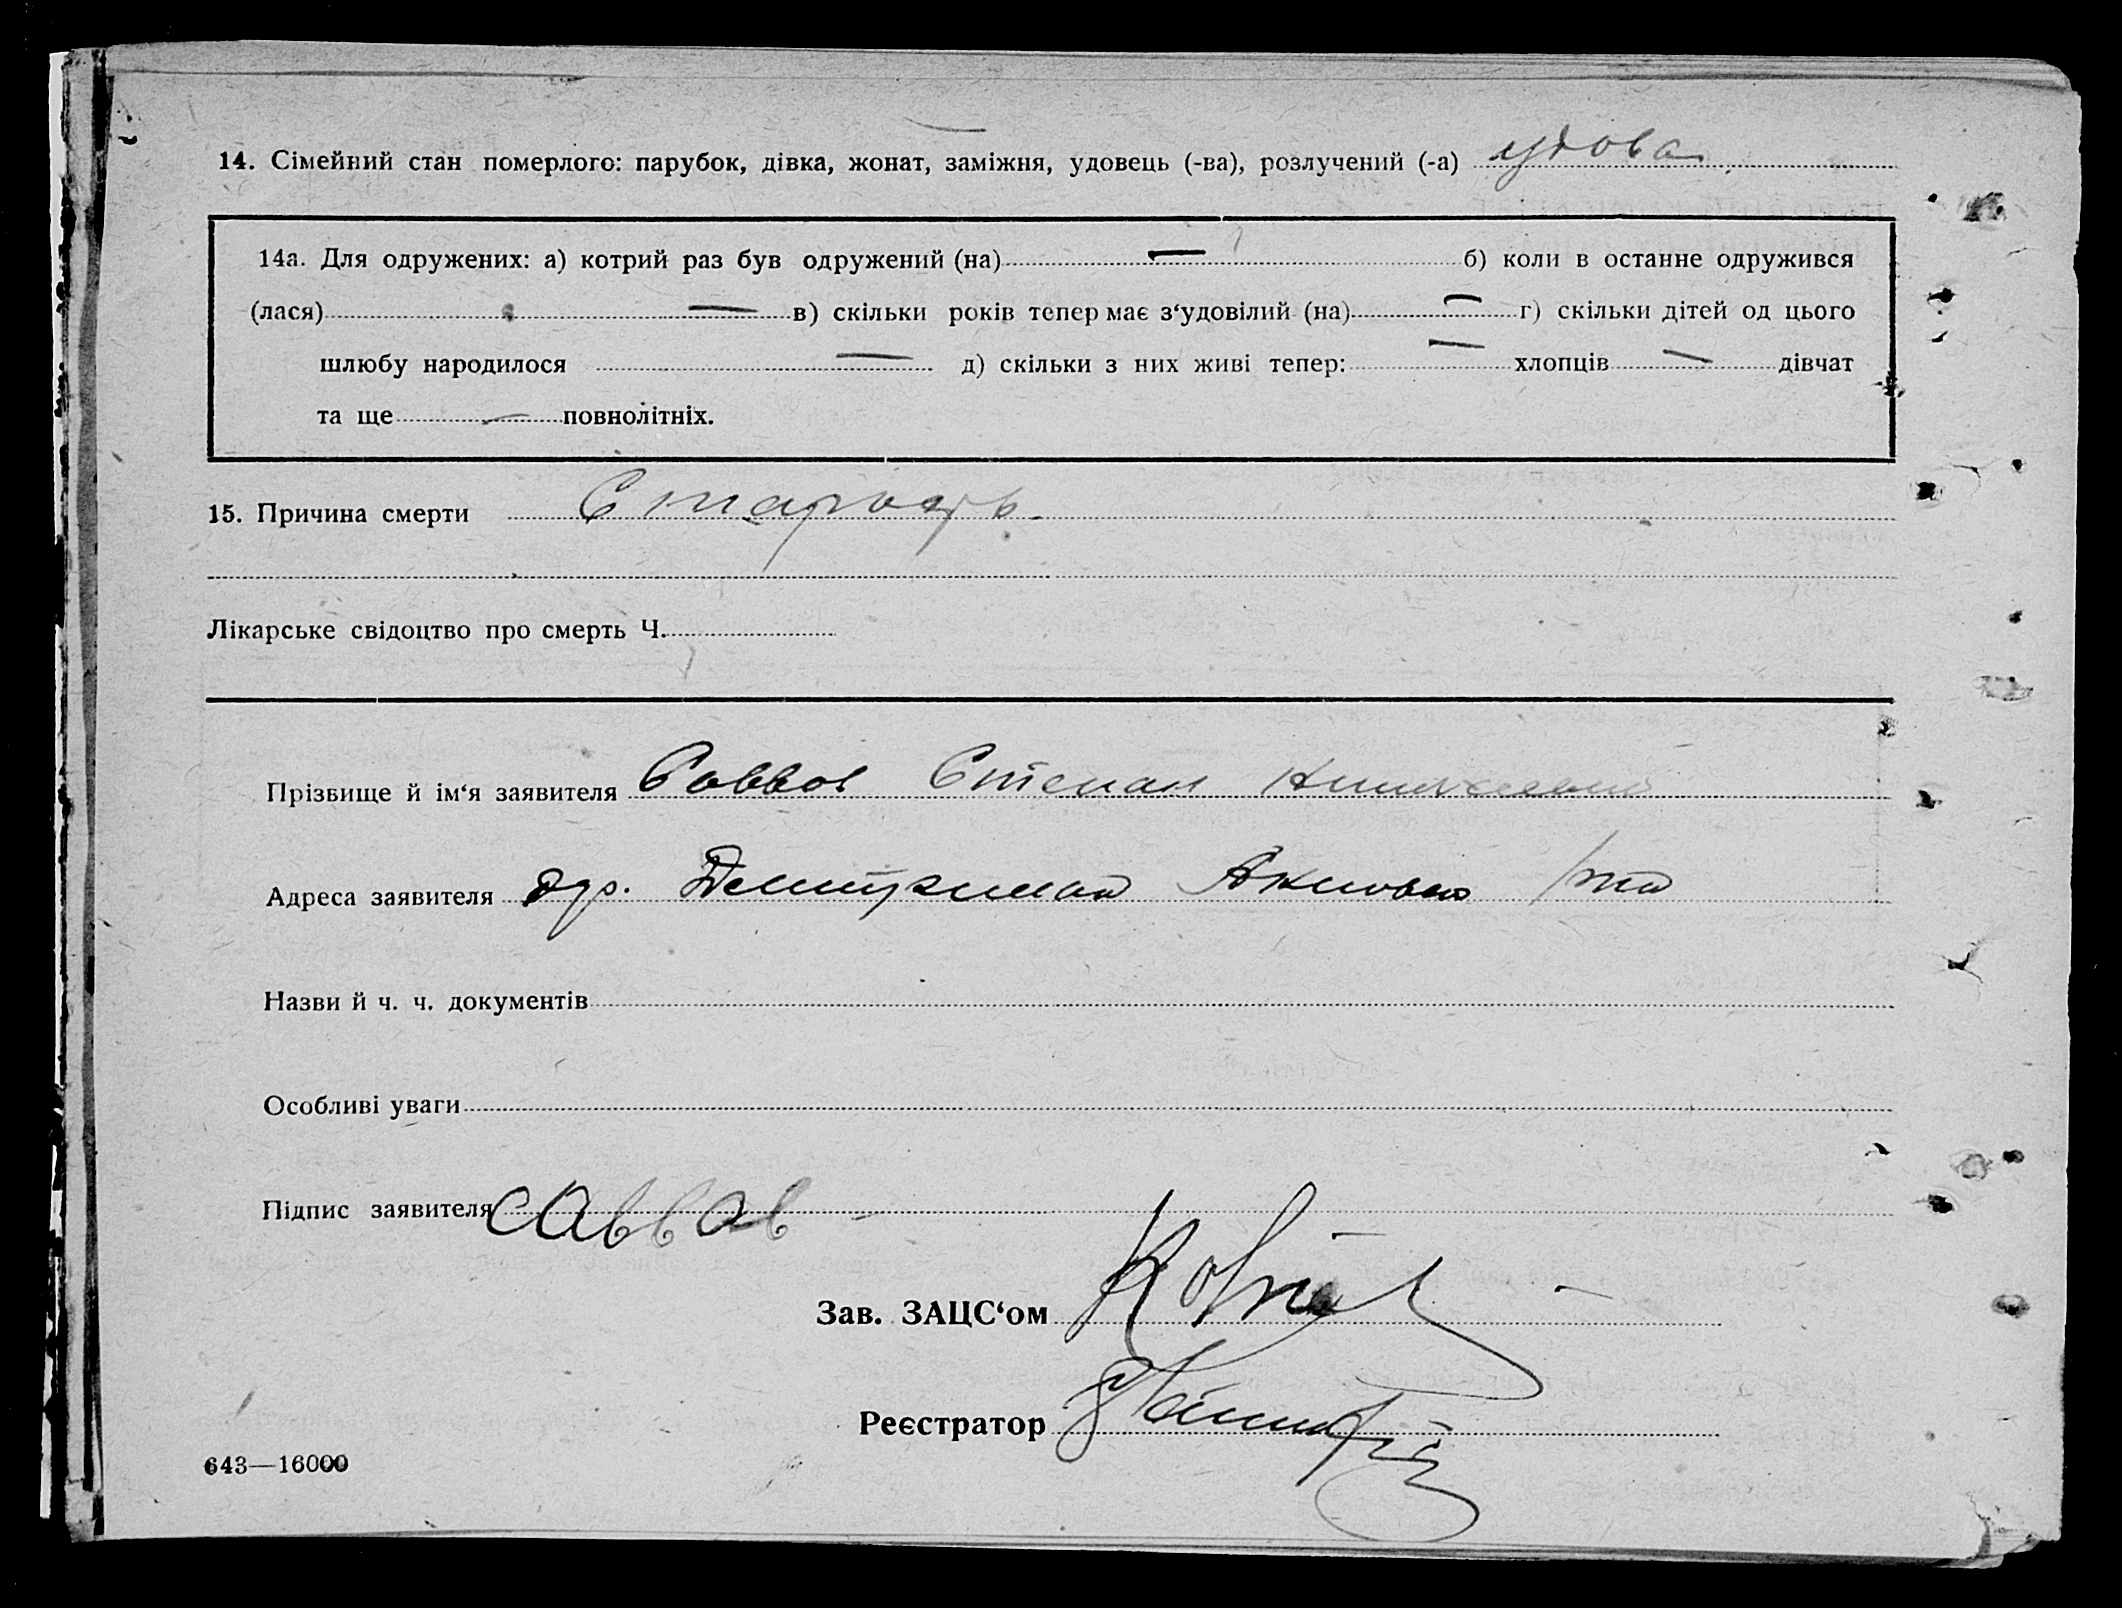 14. Сімейний стан померлого: парубок, дівка, жонат, заміжня, удовець (-ва), розлучений (-а) удова
14а. Для одружених: а) котрий раз був одружений (на) — б) коли в останнє одружився
(лася) — в) скільки років тепер має з‘удовілий (на) — г) скільки дітей од цього
шлюбу народилося — д) скільки з них живі тепер: — хлопців — дівчат
та ще — повнолітніх.
15. Причина смерти Старость
Лікарське свідоцтво про смерть Ч.
Прізвище й ім‘я заявителя Саввов Степан
Адреса заявителя
Назви й ч. ч. документів
Особливі уваги
Підпис заявителя Саввов
Зав. ЗАЦС‘ом
Реєстратор
643—16000